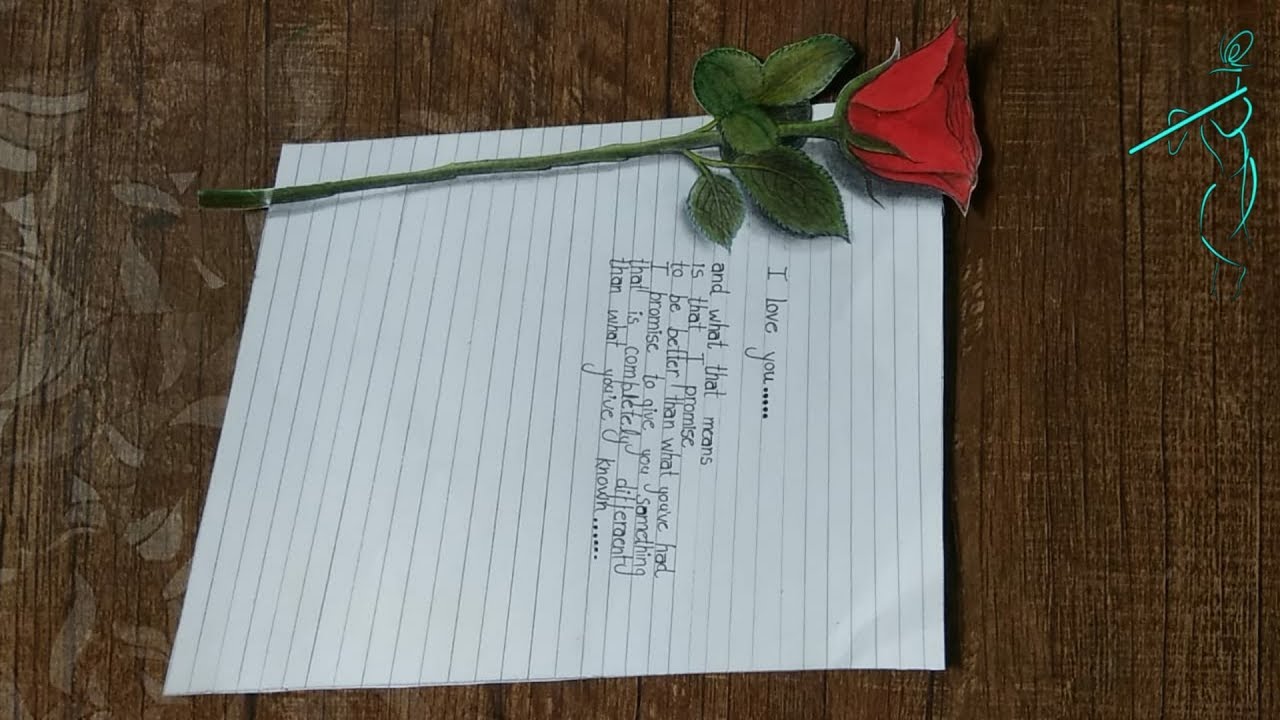 I love you.....
and what that means
is that I promise
to be better than what you've had
I promise to give you something
that is completely differaenty
than what you've known......